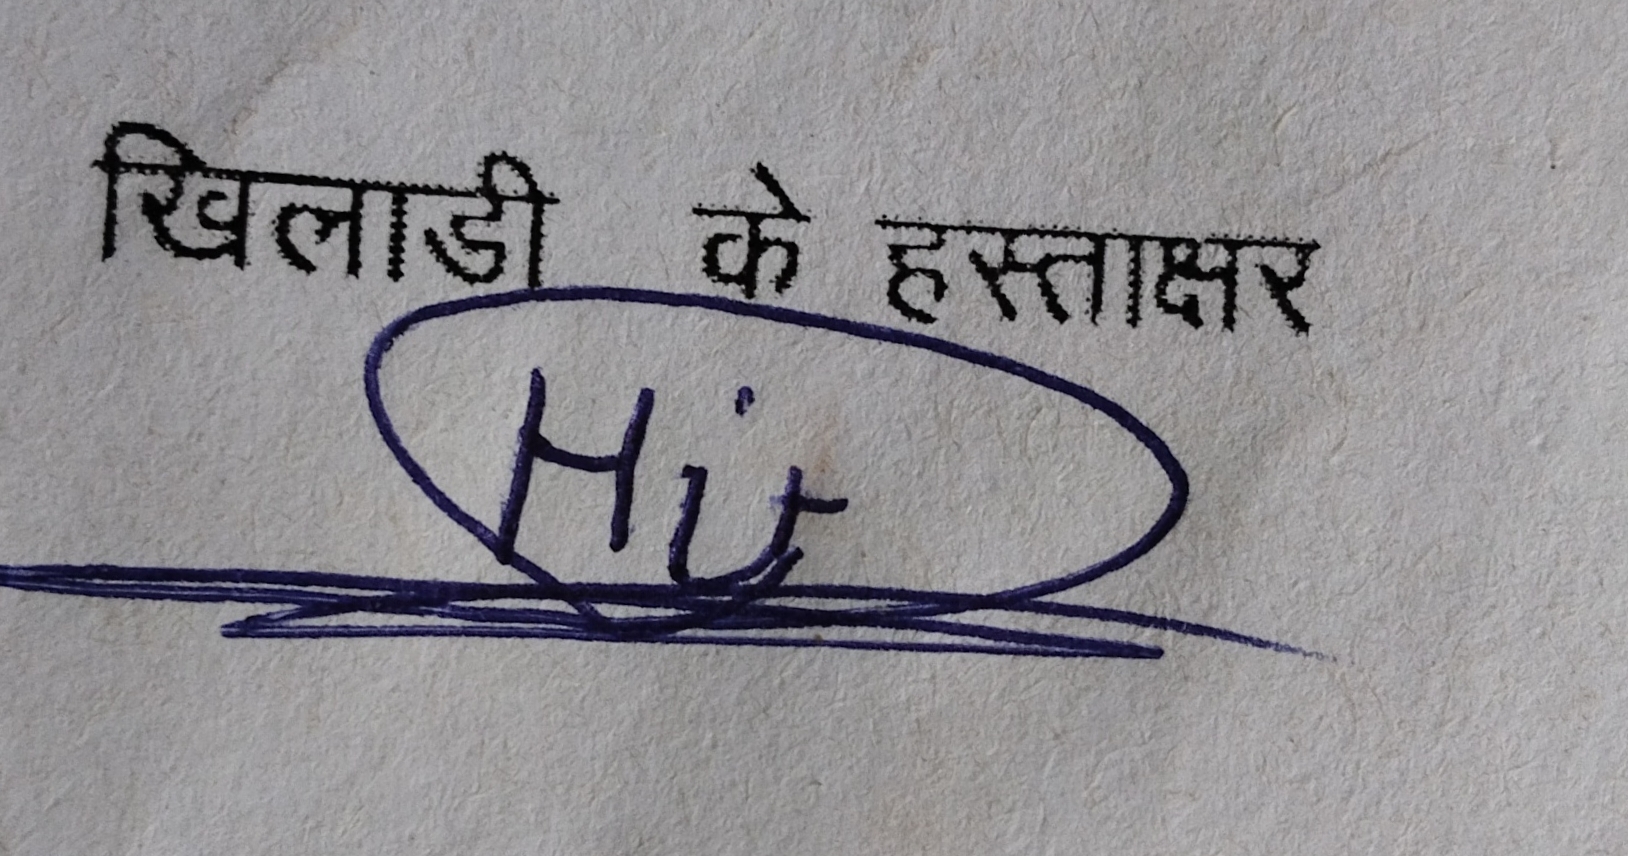 खिलाडी के हस्ताक्षर
Hit